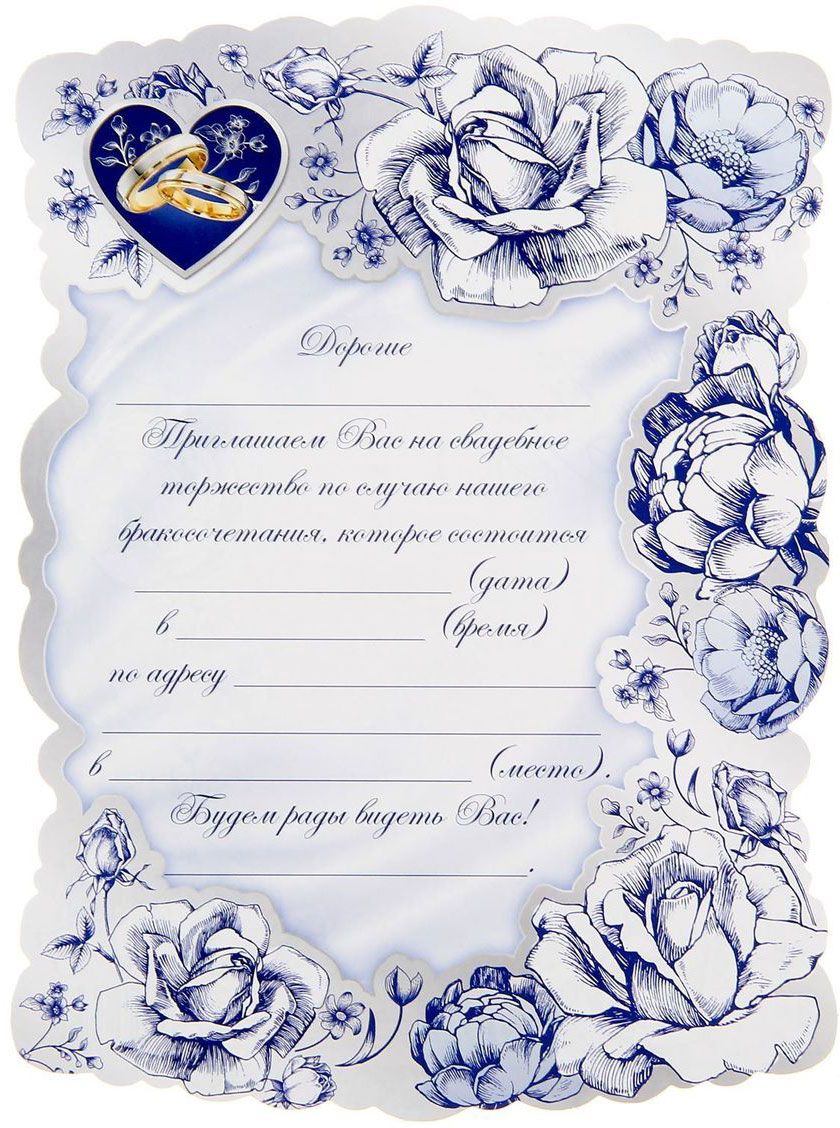 Дорогие
Приглашаем Вас на свадебное
торжество по случаю нашего
бракосочетания, которое состоится
(дата)
в (время)
по адресу
в (место).
Будем рады видеть Вас!
.